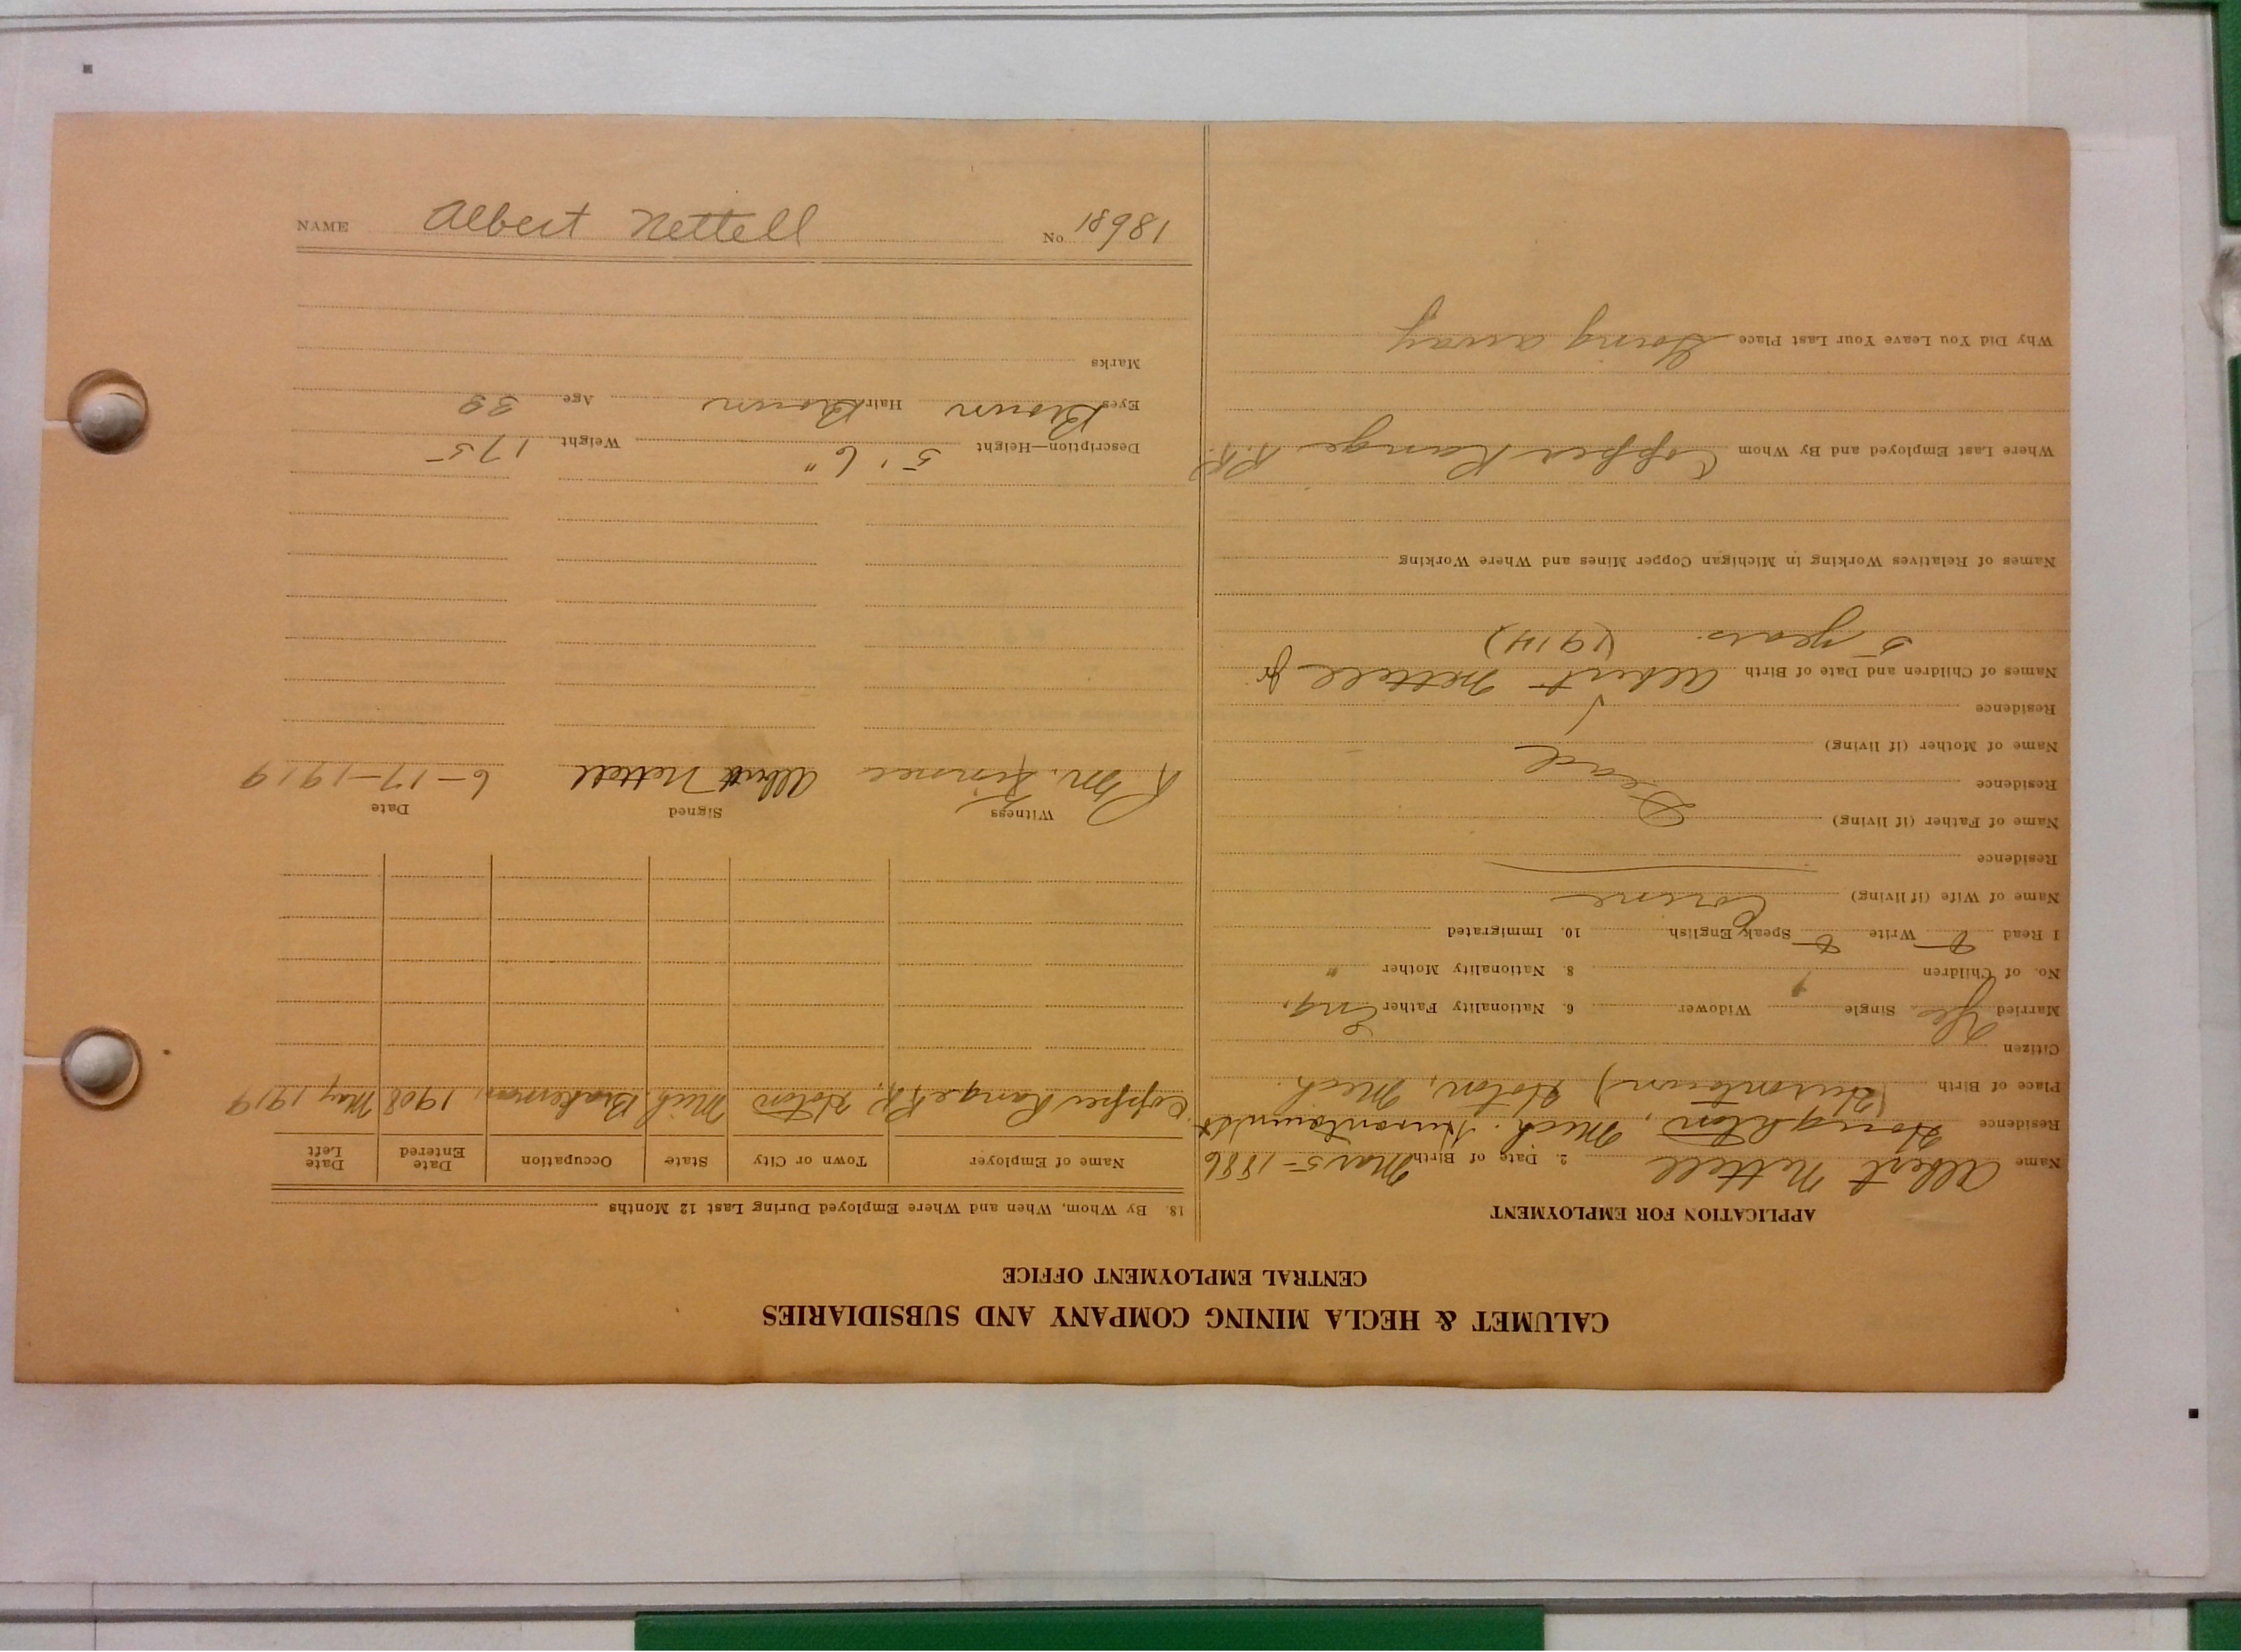 CALUMET & HECLA MINING COMPANY AND SUBSIDIARIES
CENTRAL EMPLOYMENT OFFICE
APPLICATION FOR EMPLOYMENT
Name Albert Nettell 2. Date of Birth Mar 5-1886
Residence Houghton, Mich. Hurontown
Place of Birth (Hurontown) Hoton, Mich.
Citizen
Married Yes Single Widower 6. Nationality Father Eng.
No. of Children 1 8. Nationality Mother "
I Read Write Speak English 10. Immigrated
Name of Wife (if living) Corine
Residence
Name of Father (if living)
Residence Dead
Name of Mother (if living)
Residence
Names of Children and Date of Birth Albert Nettell Jr
5 years. (1914)
Names of Relatives Working in Michigan Copper Mines and Where Working
Where Last Employed and By Whom Copper Range R.R.
Why Did You Leave Your Last Place Going away
18. By Whom, When and Where Employed During Last 12 Months
Name of Employer Town or City State Occupation Date Entered Date Left
Copper Range R.R. Hoton Mich. Brakeman 1908 May 1919
Witness Signed Date
R M. Albert Nettell 6-17-1919
Description—Height 5' 6" Weight 175
Eyes Brown Hair Brown Age 33
Marks
NAME Albert Nettell No. 18681